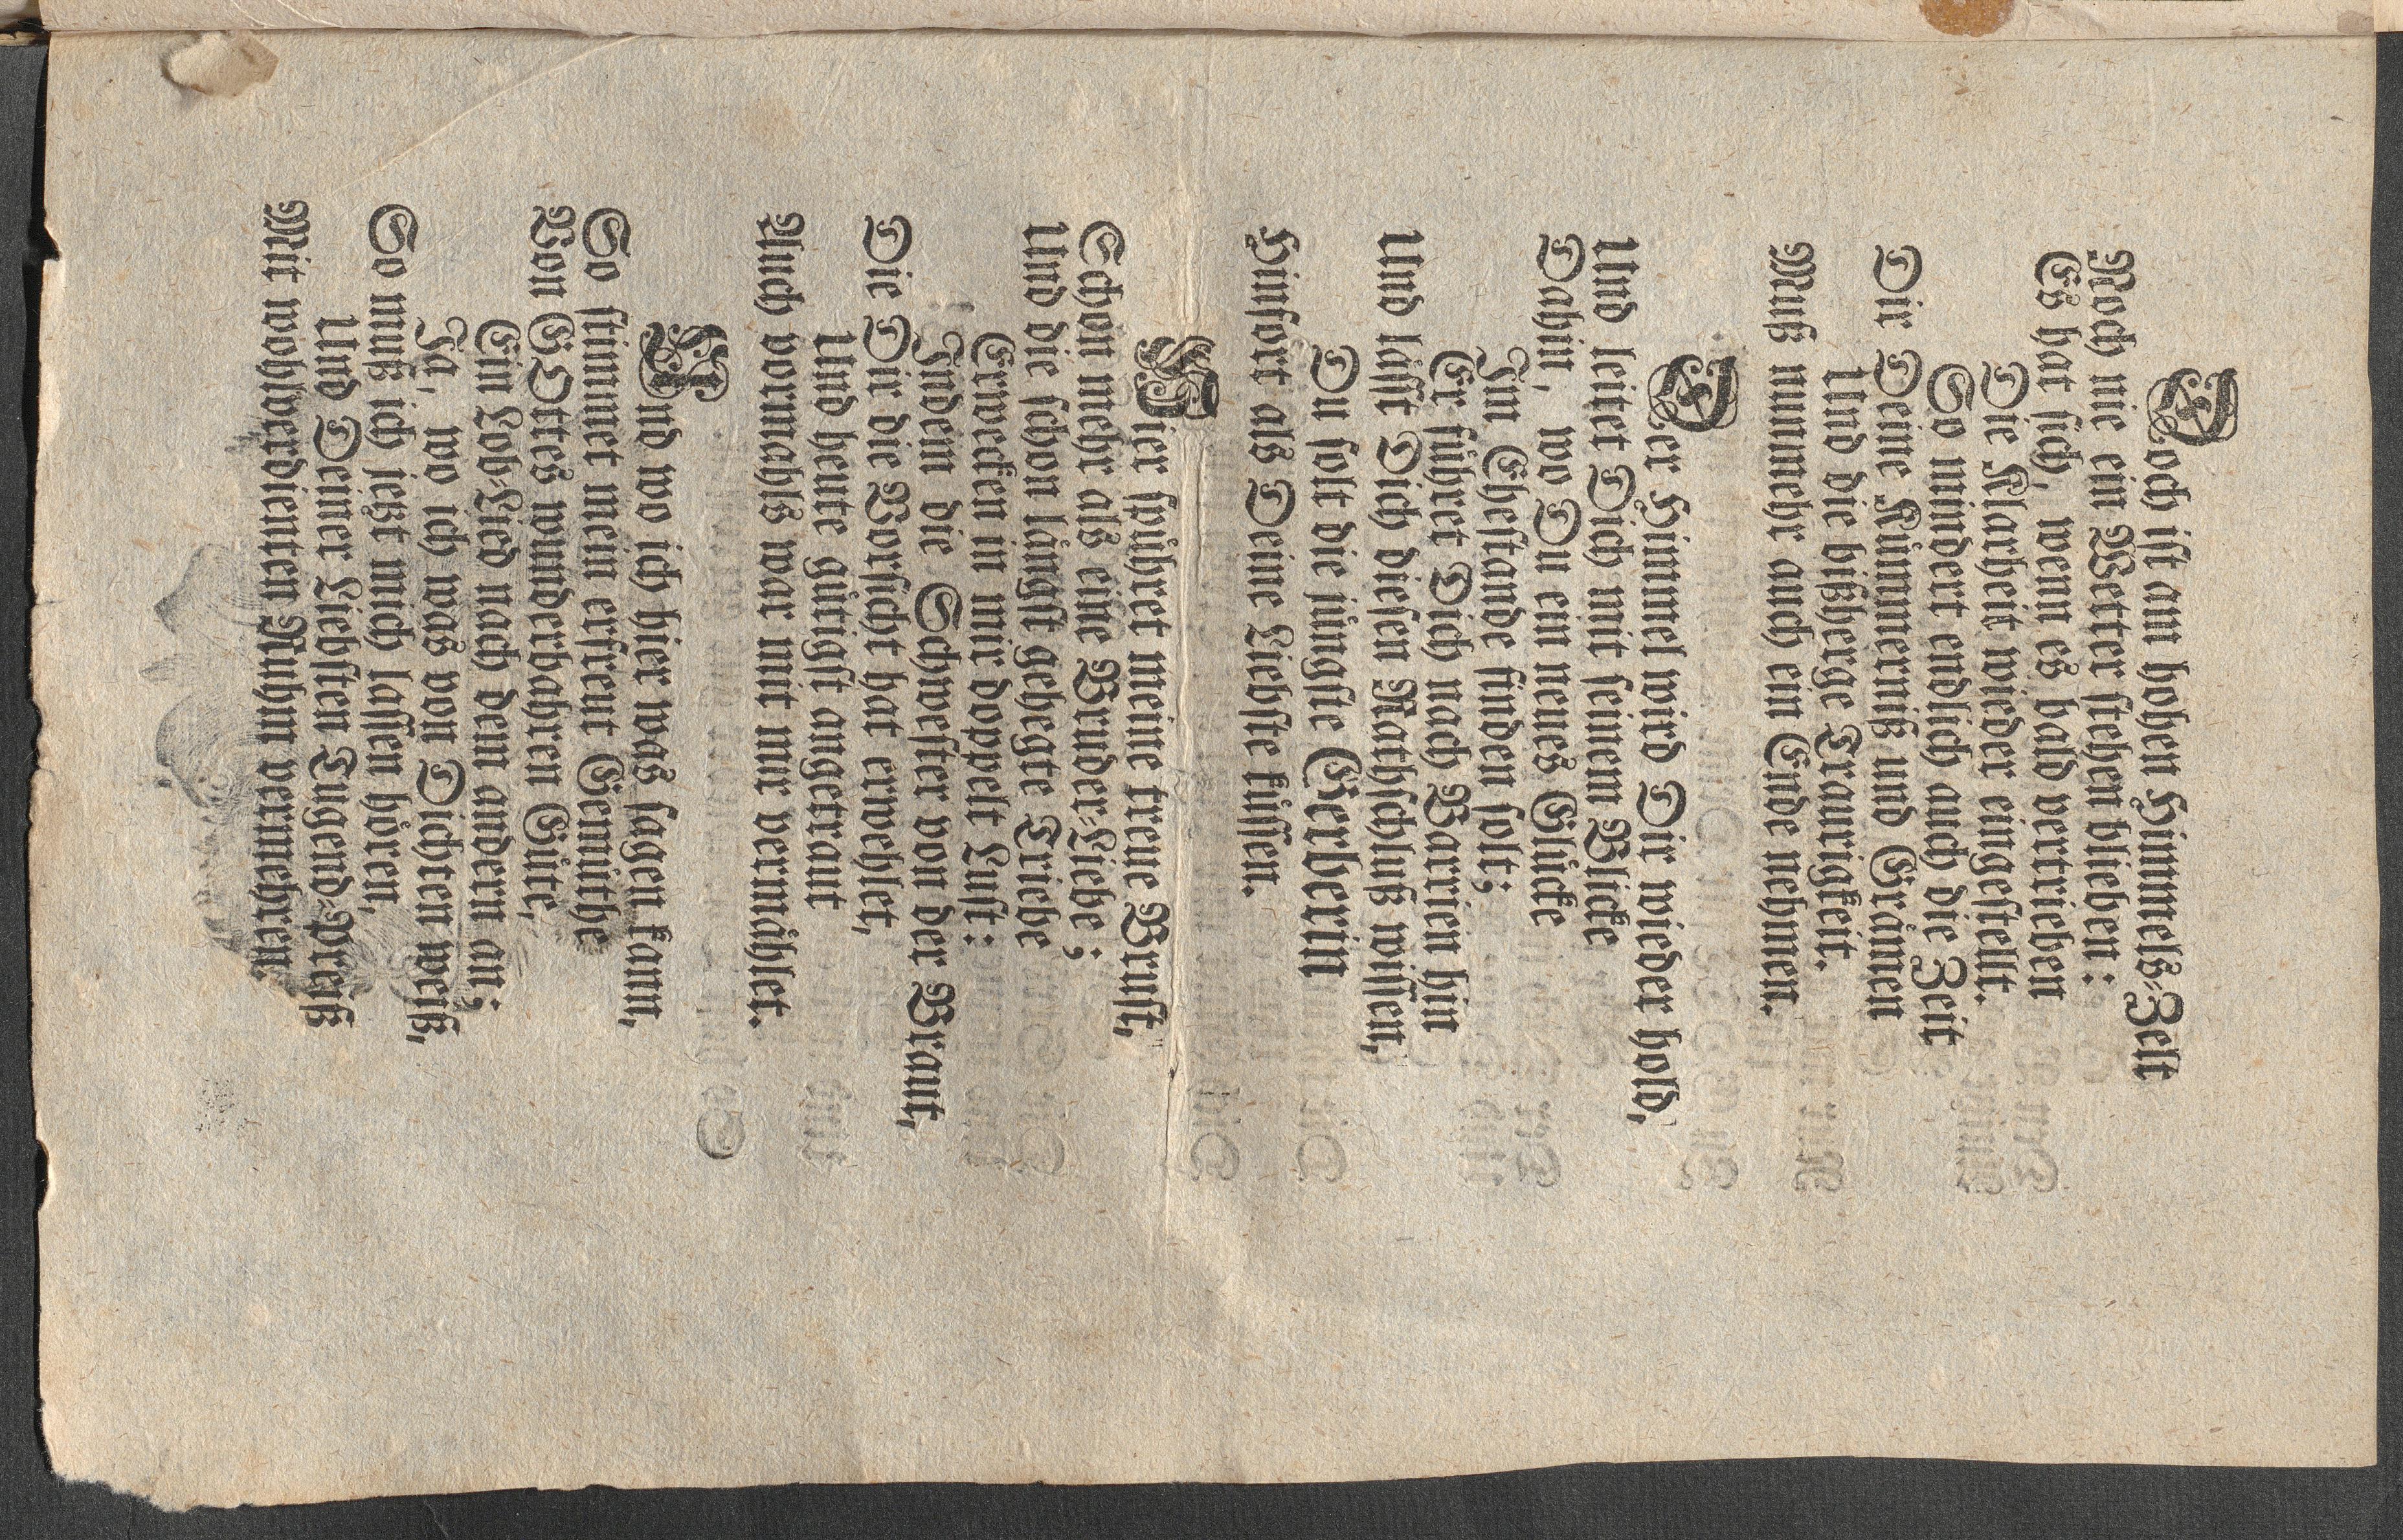 Doch ist am hohen Himmels-Zelt
Noch nie ein Wetter stehen blieben:
Es hat sich, wenn es bald vertrieben
Die Klarheit wieder eingestellt.
So mindert endlich auch die Zeit
Dir Deine Kümmerniß und Grämen
Und die bißherge Traurigkeit.
Muß nunmehr auch ein Ende nehmen.
Der Himmel wird Dir wieder hold,
Und leitet Dich mit seinem Blicke
Dahin, wo Du ein neues Glücke
Im Ehestande finden solt;
Er führet Dich nach Barrien hin
Und läst Dich diesen Rathschluß wissen,
Du solt die jüngste Gerberin
Hinfort als Deine Liebste küssen.
Hier spühret meine treue Brust,
Schon mehr als eine Bruder-Liebe;
Und die schon längst gehegte Triebe
Erwecken in mir doppelt Lust:
Indem die Schwester von der Braut,
Die Dir die Vorsicht hat erwehlet,
Und heute gütigst angetraut
Auch vormahls war mit mir vermählet.
Und wo ich hier was sagen kann,
So stimmet mein erfreut Gemüthe
Von GOttes wunderbahren Güte,
Ein Lob-Lied nach dem andern an;
Ja, wo ich was von Dichten weiß,
So muß ich jetzt mich lassen hören,
Und Deiner Liebsten Tugend-Preiß
Mit wohlverdienten Ruhm vermehren.